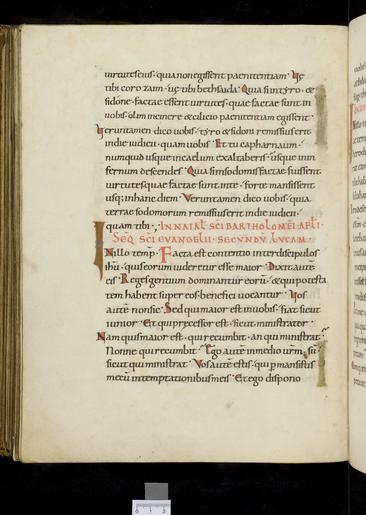 uirtutes eius · quia non egissent paenitentiam · Uę
tibi corozaim · uę tibi bethsaida · Quia si in tyro · &
sidone · factae essent uirtutes · quae factae sunt in
uobis · olim in cinere & cilicio paenitentiam egissent ·
Ueruntamen dico uobis · tyro & sidoni remissius erit
in die iudicii · quam uobis · Et tu capharnaum ·
numquid usque in caelum exaltaberis · usque in in
fernum descendes · Quia si in sodomis factae fuissent
uirtutes quae factae sunt in te · forte mansissent
usq; in hanc diem · Veruntamen dico uobis · quia
terrae sodomorum remissius erit in die iudicii ·
quam tibi · IN NAT SCI BARTHOLOMEI APLI ·
SEQ SCI EVANGELII · SECUNDU LUCAM ·
IN illo temp · Facta est contentio inter discipulos
ihu · quis eorum uideretur esse maior · Dixit aute
eis · Reges gentium dominantur eoru · & qui potesta
tem habent super eos · benefici uocantur · Vos
aute non sic · Sed qui maior est in uobis · fiat sicut
iunior · Et qui precessor est · sicut ministrator ·
Nam quis maior est · qui recumbit · an qui ministrat
Nonne qui recumbit · Ego aute in medio urm su
sicut qui ministrat · Vos aute estis · qui permansistis
mecu in temptationibus meis · Et ego dispono